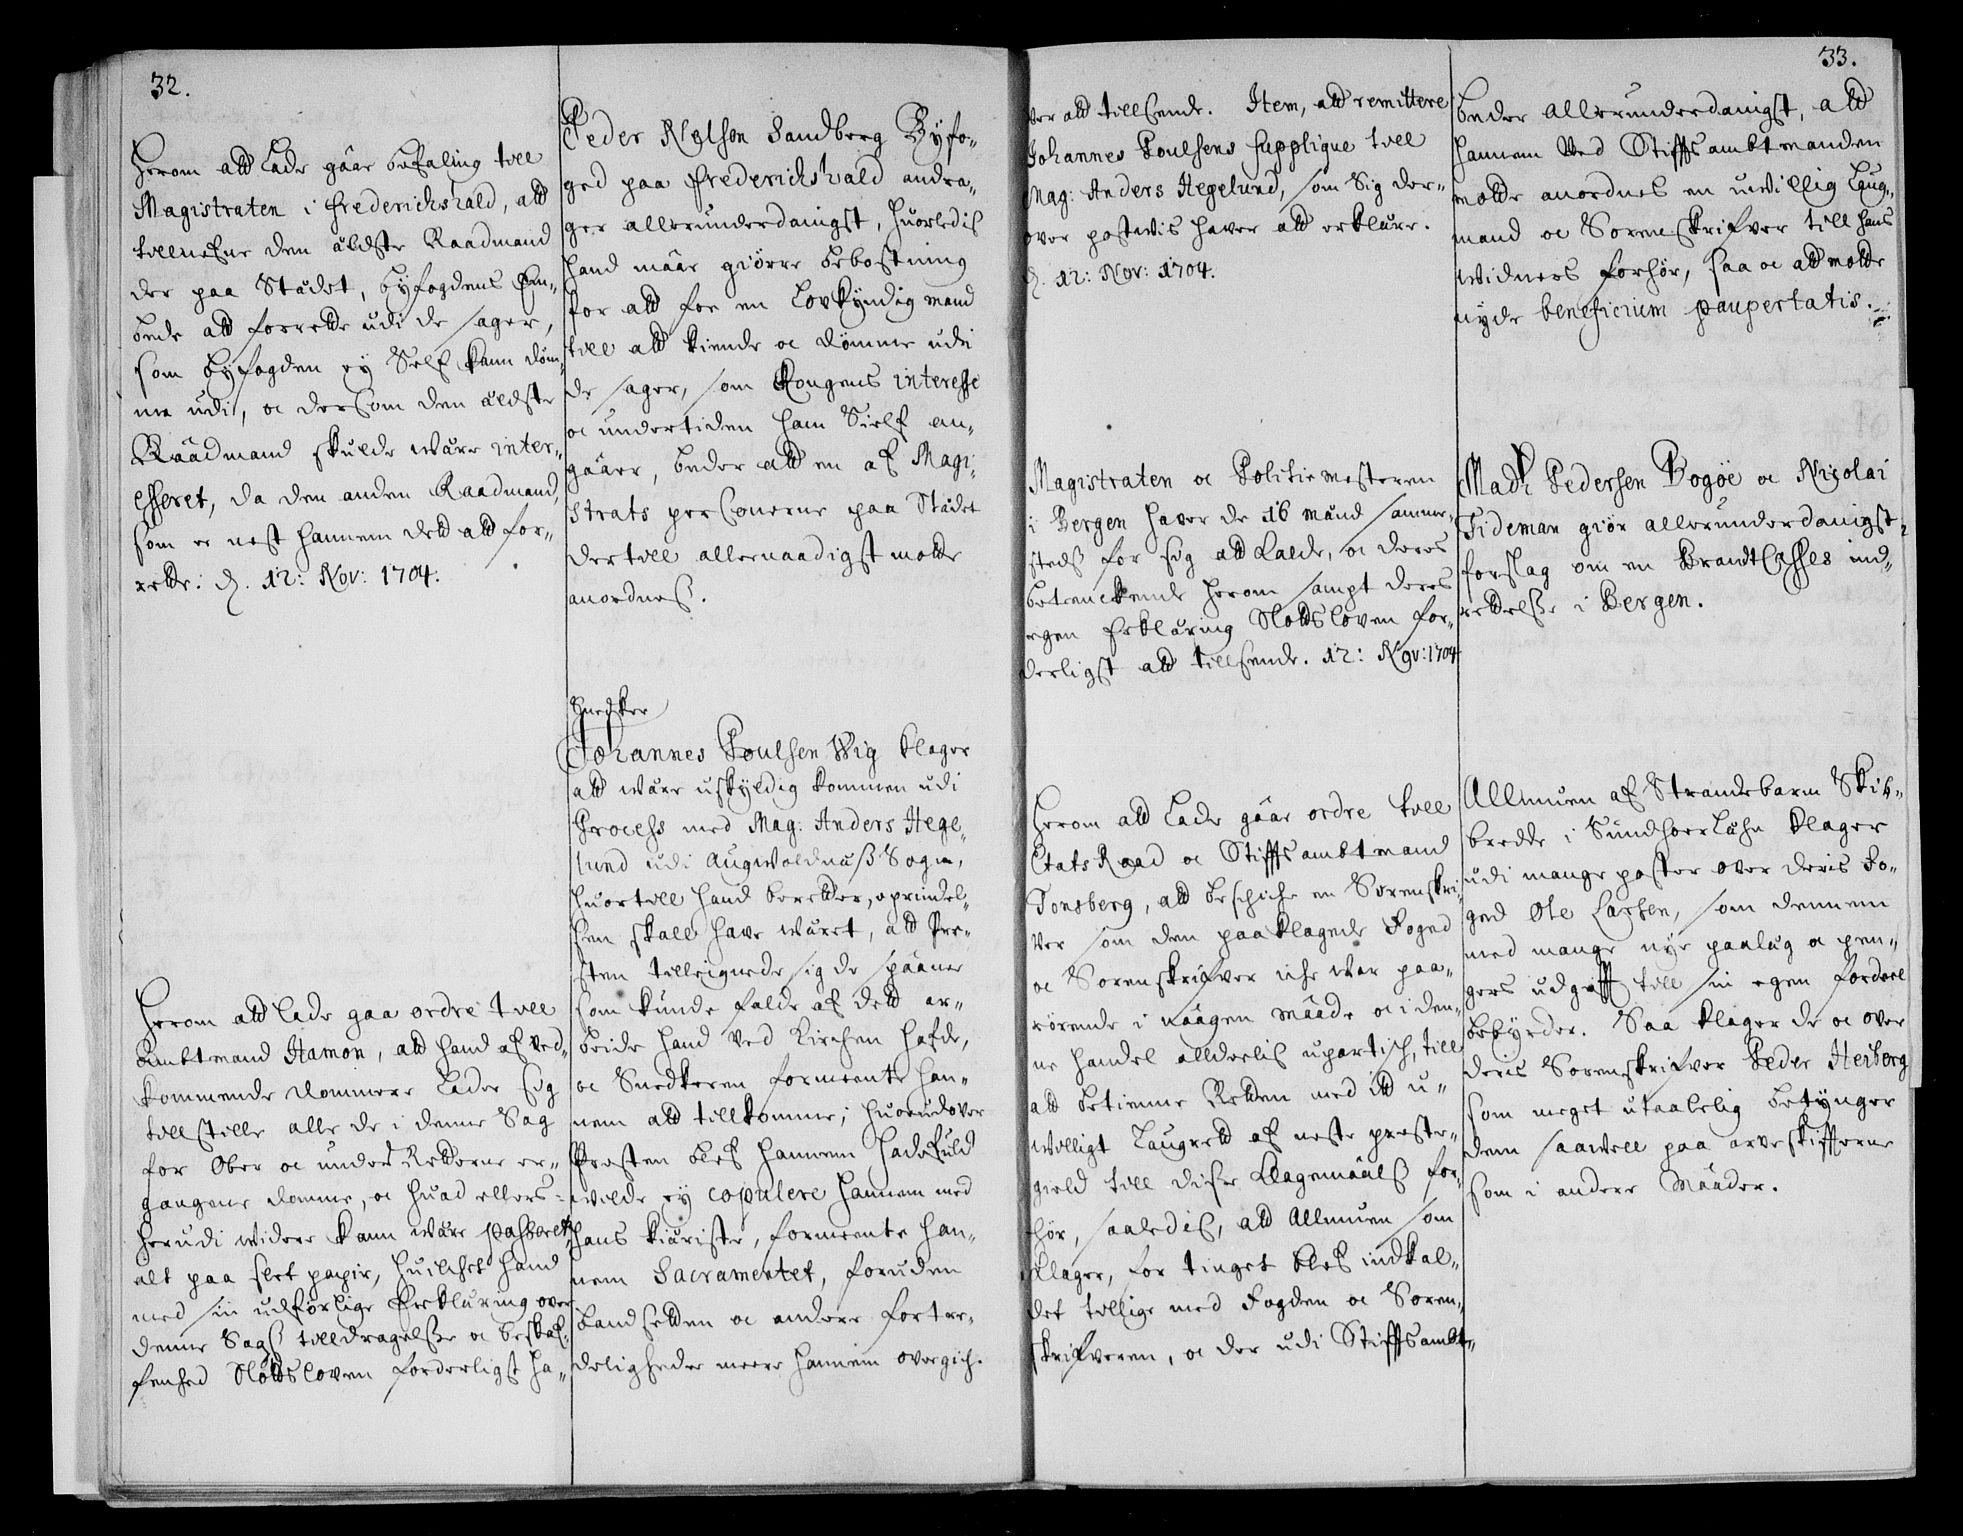 32.
Herom att Lade gäar befaling till
Magistraten i Frederichshald, att
tillnefne den äldste Raadmand
der paa Städet, byfogdens Em-
bede att forrette udi de sager,
som byfogden ey Self kann döm-
me udi, oc dersom den äldste
Räädmand skulde wäre inter-
esseret, da den anden Raadmand,
som er nest hannem dett att for-
rette. d. 12: Nov: 1704.
Herom att lade gaa ordre till
Ambtmand Hamon, att hand af ved-
kommende dommere Lader sig
tillstille alle de i denne Sag
for Ober oc under Retterne er-
gangene domme, oc huad ellers
herudi widere kann wäre passeret
alt paa slet papir, huilchet hand
med sin udförlige Erklæring over
denne Sags tilldragelsse oc beskaf-
fenhed Slottsloven forderligst ha-
Peder Nelsen Sandberg Byfo-
ged paa Frederichshald andra-
ger allerunderdanigst, huorledis
hand mäae giörre bebostning
for att foe en Lovkyndig mand
till att kiende oc dömme udi
de sager, som Kongens interesse
oc undertiden ham Sielf an-
gäaer, beder att en af Magi-
strats personerne paa Städet
dertill allernaadigst motte
anordnes.
Snedker
Johannes Poulsen Wig klager
att wäre uskyldig kommen udi
Process med Mag: Anders Hege-
lund udi Augwoldnæss Sogn,
huortill hand beretter, oprindel-
sen skall have wäret, att Pre-
sten tilleignede sig de spaaner
som kunde falde af dett ar-
beide hand ved Kirchen hafde,
oc Snedkeren formeente han-
nem att tillkomme; huorudover
Presten blef hannem hadefuld
wilde ey copulere hannem med
hans kiäriste, formeente han-
nem Sacramentet, foruden
bandsetten oc andere fortre-
deligheder meere hannem overgich.
33.
ver att tillsende. Item, att remittere
Johannes Poulsens supplique till
Mag: Anders Hegelund, som Sig der-
over postvis haver att erklære.
d. 12: Nov: 1704.
Magistraten oc Politiemesteren
i Bergen haver de 16 mänd samme-
steds for sig att kalde, oc deres
betenckende herom sampt deres
egen Erklæring Slottsloven for-
derligst att tillsende. 12: Nov: 1704
Herom att Lade gäae ordre till
Etats Raad oc Stiffts ambtmand
Tonsberg, att beschiche en Sorenskri-
ver som den paaklagede Foged
oc Sorenskrifver iche war paa-
rörende i näagen määde oc i den-
ne handel alldeelis upartisch, till
att betienne Retten med itt u-
willigt Laugrett af neste preste-
gield till disse Klagemääls for-
hör, saaledis, att Allmuen som
klager, for tinget blef indkal-
det tillige med Fogden oc Soren-
skrifveren, oc der udi Stiffts ambt-
beder allerunderdanigst, att
hannem ved Stiffts ambtmanden
motte anordnes en uwillig Laug-
mand oc Sorenskrifver till hans
widners forhör, saa oc att motte
nyde beneficium paupertatis.
Mads Pedersen Bogöe oc Nicolai
Tideman giör allerunderdanigst
forslag om en Brandt Casses ind-
rettelsse i Bergen.
Allmuen af Strandebarm Skib-
bredde i Sundhoerlehn klager
udi mange poster over deris Fo-
ged Ole Larsen, som dennem
med mange nye paalæg oc pen-
gers udgifft till sin egen fordeel
bebyrder. Saa klager de oc over
deris Sorenskrifver Peder Heiberg
som meget utaalelig betynger
dem saavell paa arveskiffterne
som i andere Määder.